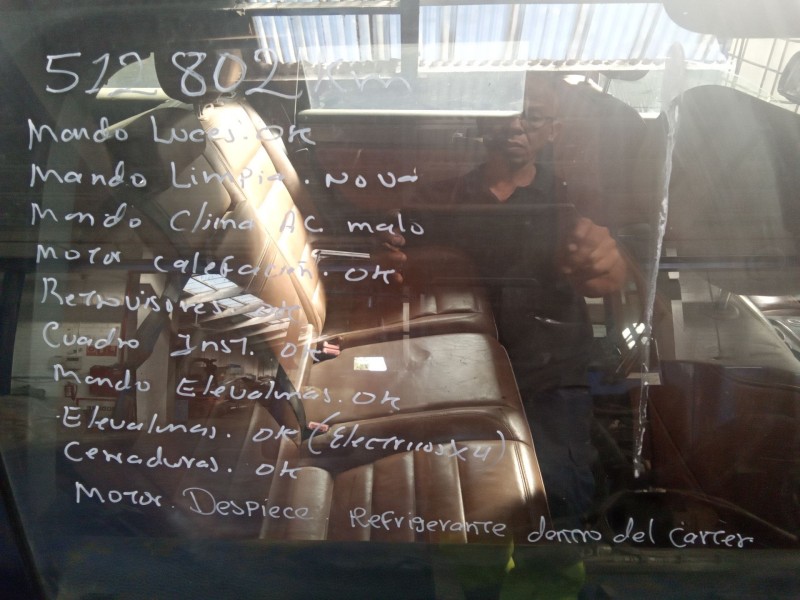 512 802 km
Mando Luces. OK
Mando Limpia. NO Va
Mando Clima AC malo
Motor calefación. OK
Retrovisores. OK
Cuadro Inst. OK
Mando Elevalunas. OK
Elevalunas. OK (Electricos x4)
Cerraduras. OK
Motor. Despiece. Refrigerante dentro del carter